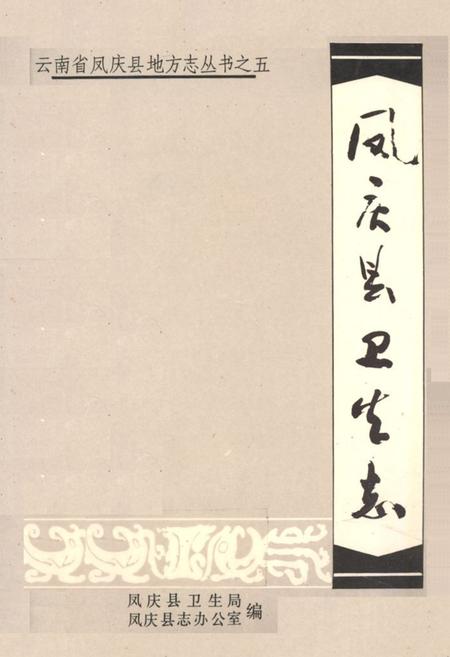 云南省凤庆县地方志丛书之五
凤庆县卫生志
凤庆县卫生局
凤庆县志办公室 编